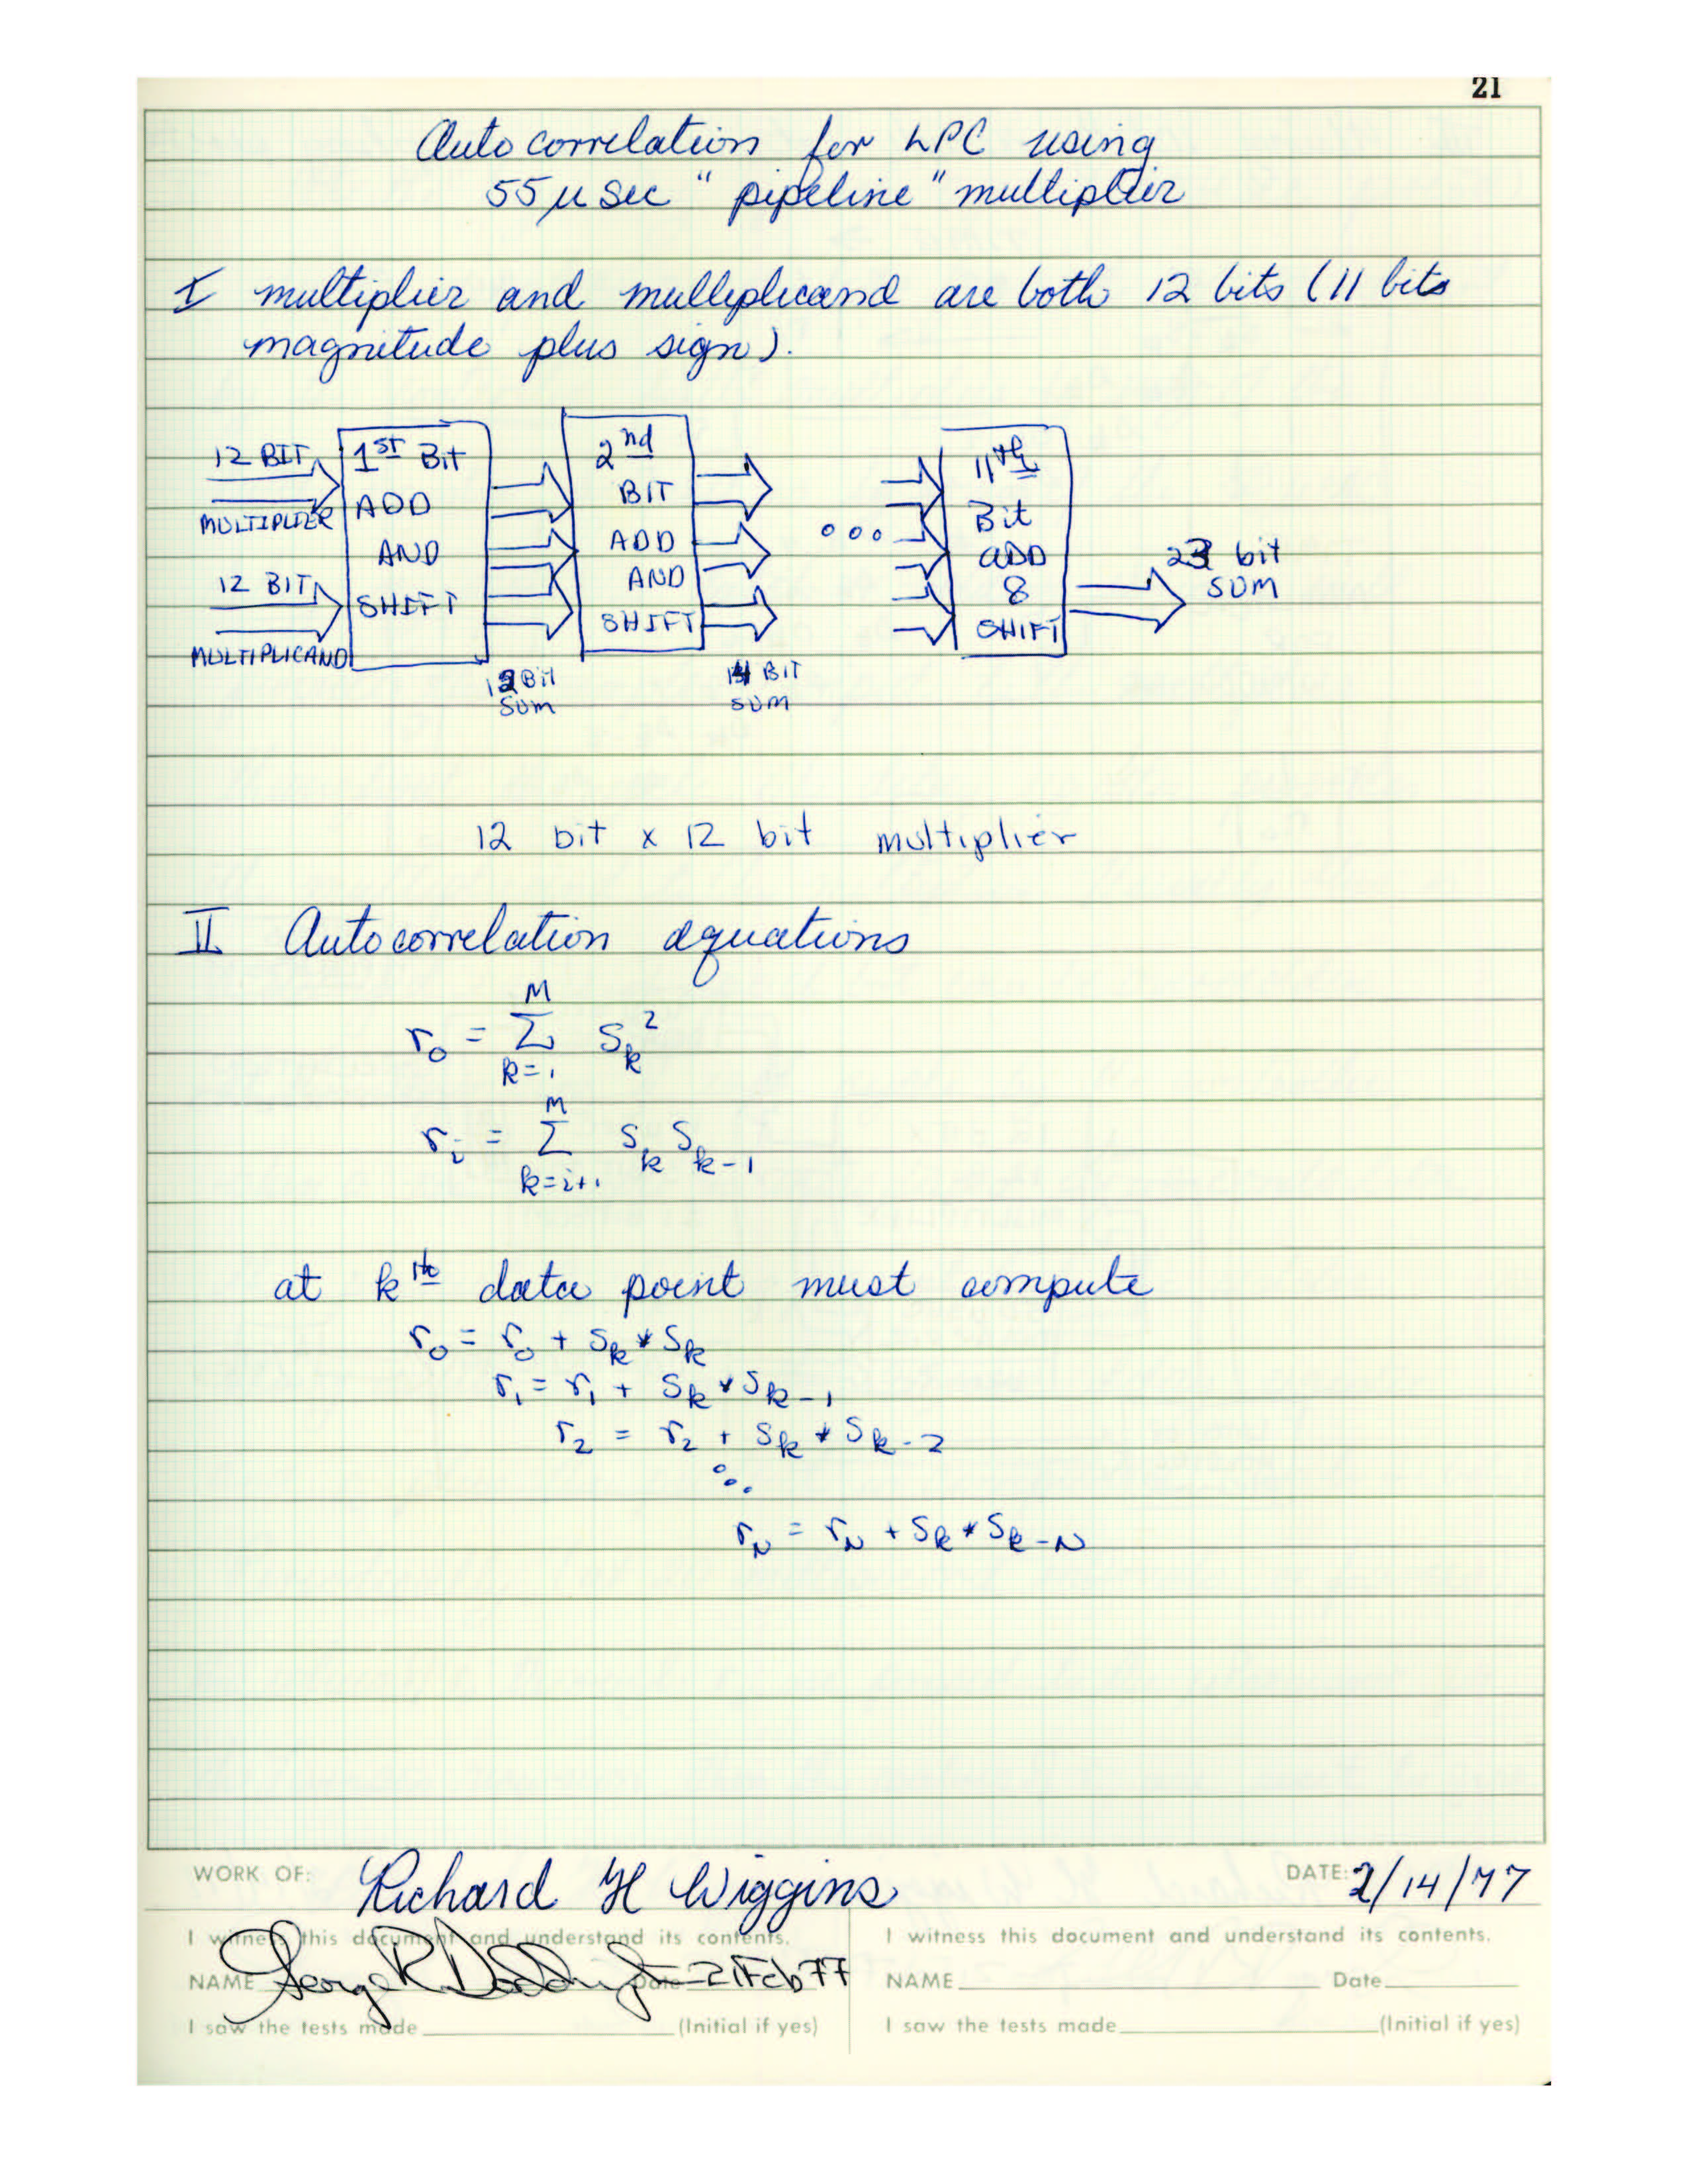 21
Autocorrelation for LPC using
55 μ sec "pipeline" multiplier
I multiplier and multiplicand are both 12 bits (11 bits
magnitude plus sign).
12 BIT
MULTIPLIER
12 BIT
MULTIPLICAND
1st Bit
ADD
AND
SHIFT
BIT
SUM
2nd
BIT
ADD
AND
SHIFT
BIT
SUM
ooo
11th
Bit
ADD
&
SHIFT
23 bit
SUM
12 bit x 12 bit multiplier
II Autocorrelation equations
r_0 = Σ_{k=1}^{M} s_k^2
r_i = Σ_{k=i+1}^{M} s_k s_{k-1}
at kth data point must compute
r_0 = r_0 + s_k * s_k
r_1 = r_1 + s_k * s_{k-1}
r_2 = r_2 + s_k * s_{k-2}
r_N = r_N + s_k * s_{k-N}
WORK OF: Richard H Wiggins DATE: 2/14/77
I witness this document and understand its contents.
NAME George R Doddington Date 21 Feb 77
I saw the tests made (Initial if yes)
I witness this document and understand its contents.
NAME Date
I saw the tests made (Initial if yes)